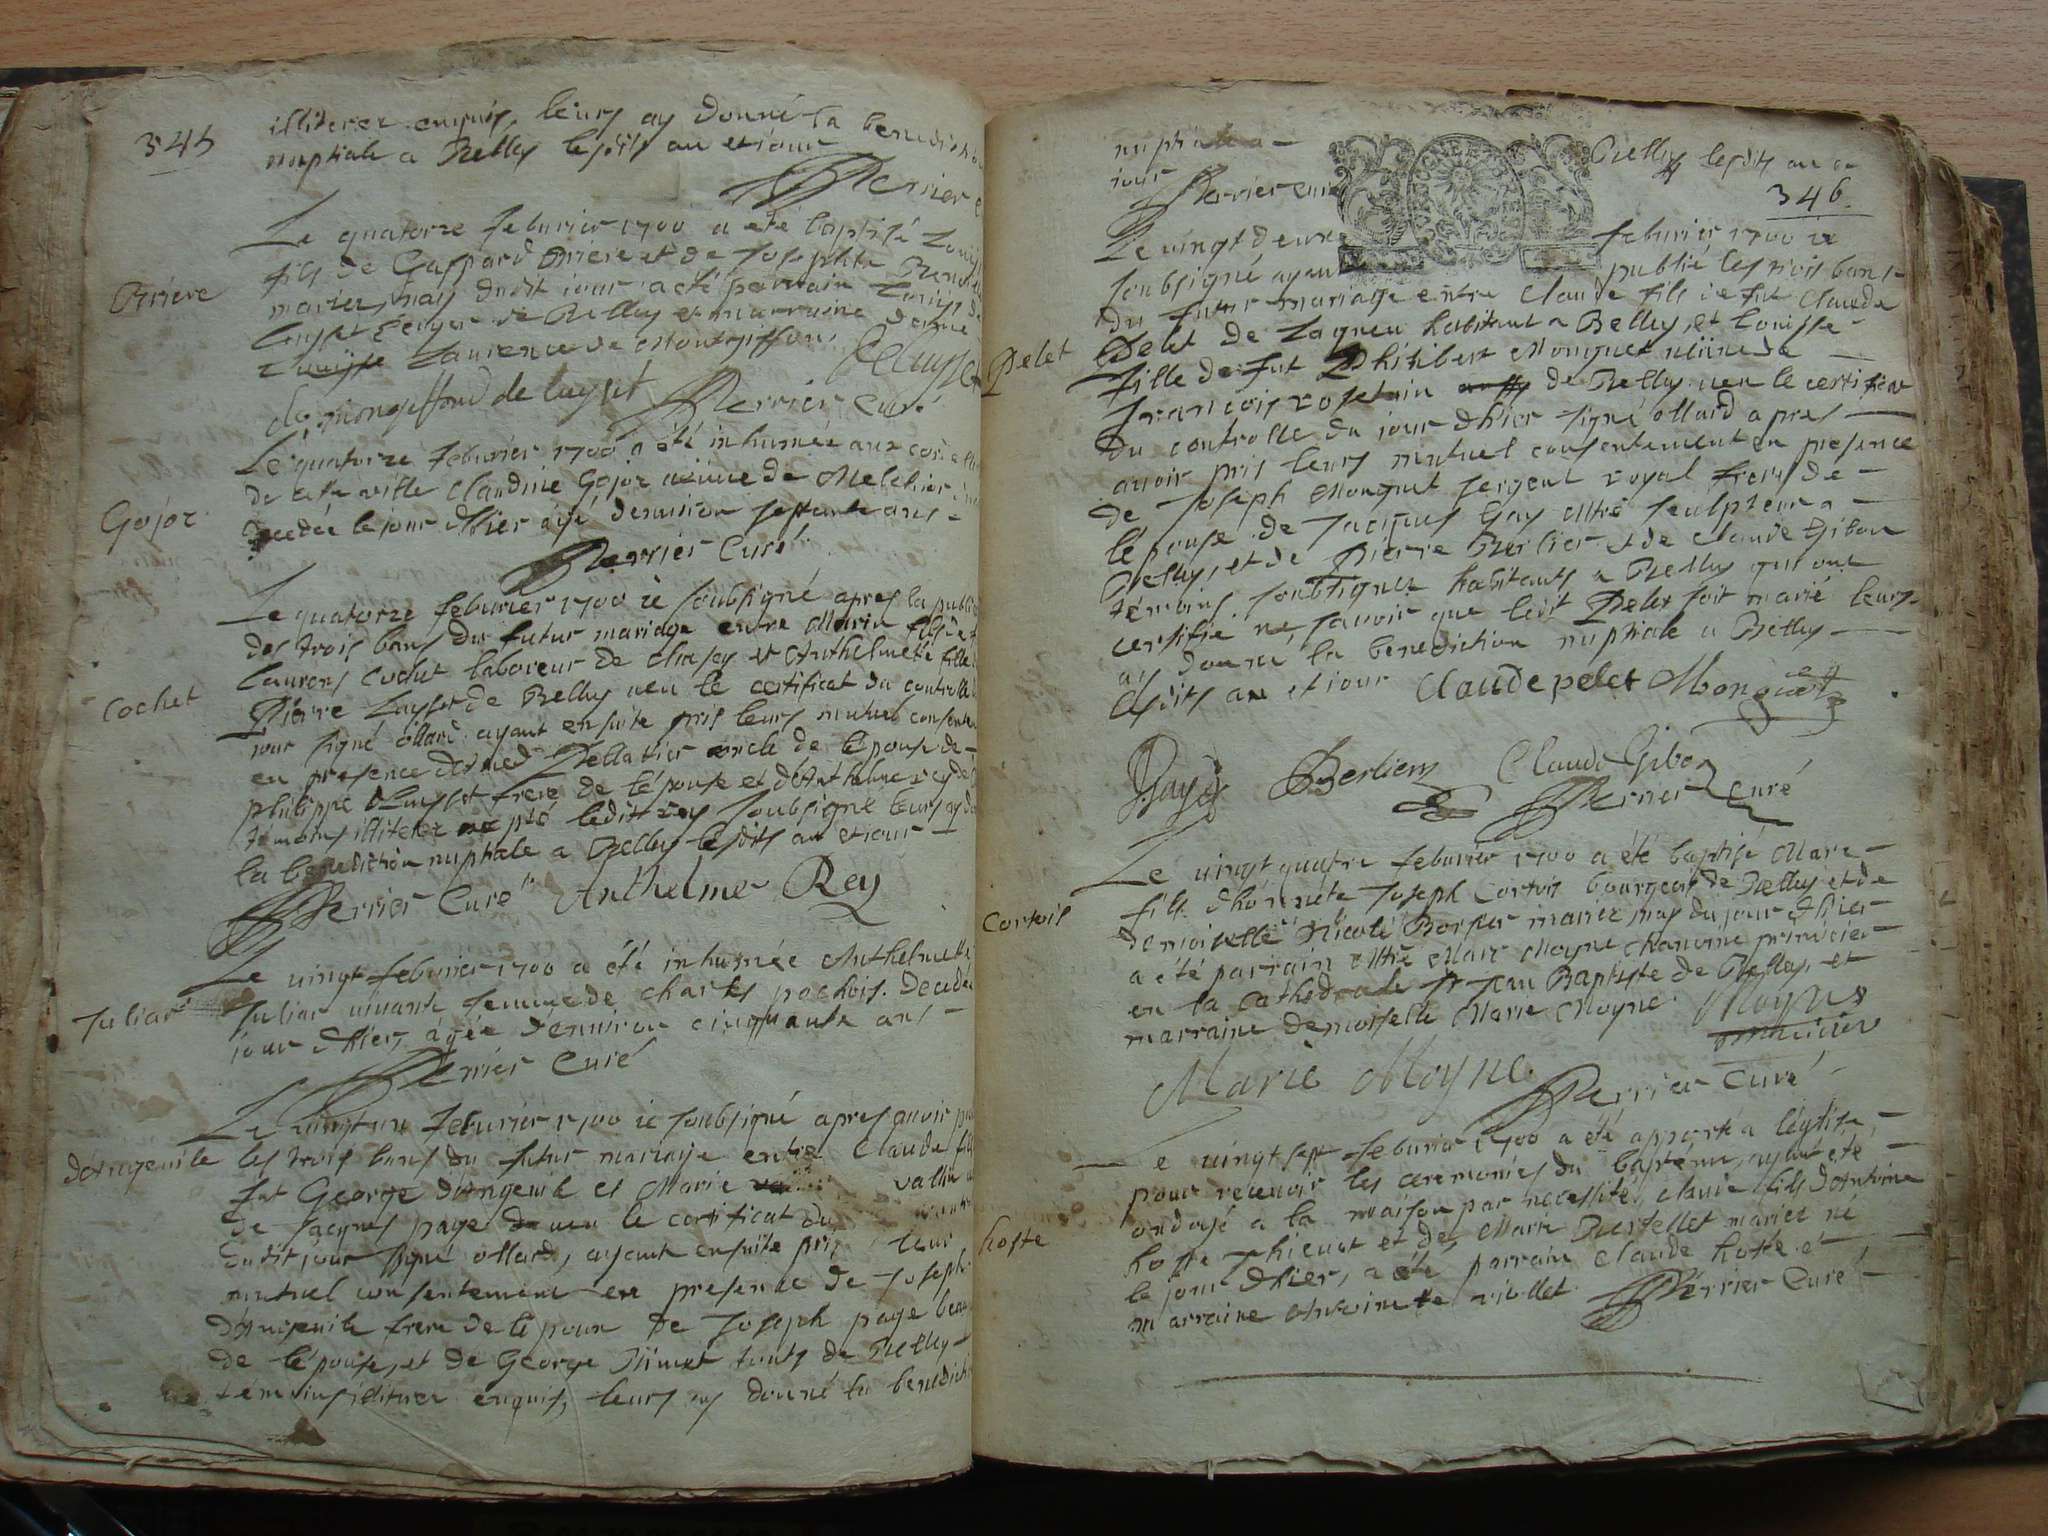 345
illiterez enquis, leurs ay donné la benediction
nuptiale a Belley lesdits an et jour
Perrier
Le quatorze feburier 1700 a été baptisé Louis
Brière
fils de Gaspard Brière et de Josephte
mariez, nay dudit jour a été parrain Louis de
Luyset de Belley et marraine dame
Laurence de Montgiffon Deluyset
de mongeffond de luyset Perrier Curé
Le quatorze feburier 1700 a été inhumée aux
Gojoz
de cette ville Claudine Gojoz veüve de Melchior
decedée le jour d'hier agé d'environ septante ans
Perrier Curé
Le quatorze feburier 1700 ie soubsigné apres la publi
des trois bans du futur mariage entre Marin fils de
Cochet
Laurens Cochet laboreur de chasey et Anthelmette fille
Pierre Luyset de Belley veu le certificat du controlle
jour signé ollard ayant ensuite pris leurs mutuel consente
en presence d'Aimed Pellatier oncle de l'epouse de
philippe Luyset frere de l'épouse et d'Anthelme rey
temoins illiterez excepté ledit rey soubsigné leurs ay
la benediction nuptiale a Belley lesdits an et jour
Perrier Curé Anthelme Rey
Le vingt feburier 1700 a été inhumée Anthelmette
Juliar
Juliar vivante femme de charles pochois. Decedée
jour d'hier, agée d'environ cinquante ans
Perrier Curé
Le vingt un feburier 1700 ie soubsigné apres avoir pu
d'Angeuile
les trois bans du futur mariage entre Claude fils
fut George d'Angeuile et Marie vallin
de Jacques page veu le certificat du
dudit jour signé ollard, ayant ensuite pris leur
mutuel consentement en presence de Joseph
d'Angeuile frere de lepoux de Joseph page beau
de l'épouse, et de George Nimet touts de Belley
témoins illiterez enquis, leurs ay donné la benediction
nuptiale a Belley lesdits an et
jour
346
Perrier curé
Le vingt deux feburier 1700 ie
soubsigné ayant publié les trois bans
du futur mariage entre Claude fils de fut Claude
Pelet
Pelet de Lagneu habitant a Belley, et Louisse
fille de fut Philibert Monguet veüve de
François rosetain de Belley veu le certificat
du controlle du jour d'hier signé ollard apres
avoir pris leurs mutuel consentement en presence
de Joseph Monguet sergent royal frere de
l'epouse de Jacques Gay Mtre sculpteur a
Belley, et de Pierre Berlier et de Claude Gibon
témoins soubsignez habitants a Belley qui ont
certifié ne savoir que ledit Pelet soit marié leurs
ay donné la benediction nuptiale a Belley
lesdits an et jour Claude pelet Monguet
JGay Berlier Claude Gibon
Perrier curé
Le vingt quatre feburier 1700 a été baptisé Marc
Cortois
fils d'honnete Joseph Cortois bourgeois de Belley et de
demoiselle Nicole mariez, nay du jour d'hier
a été parrain Mtre Marc Moyne chanoine primicier
en la Cathedrale St Jean Baptiste de Belley, et
marraine demoiselle Marie Moyne. Moyne
primicier
Marie Moyne.
Perrier Curé
Le vingt sept feburier 1700 a été apporté a l'église
pour recevoir les ceremonies du baptéme, ayant été
ondoyé a la maison par necessité, claude fils d'Antoine
hoste
hoste Thienot et de Marie mariez né
le jour d'hier, a été parrain Claude hoste et
marraine Antoinette violet Perrier Curé